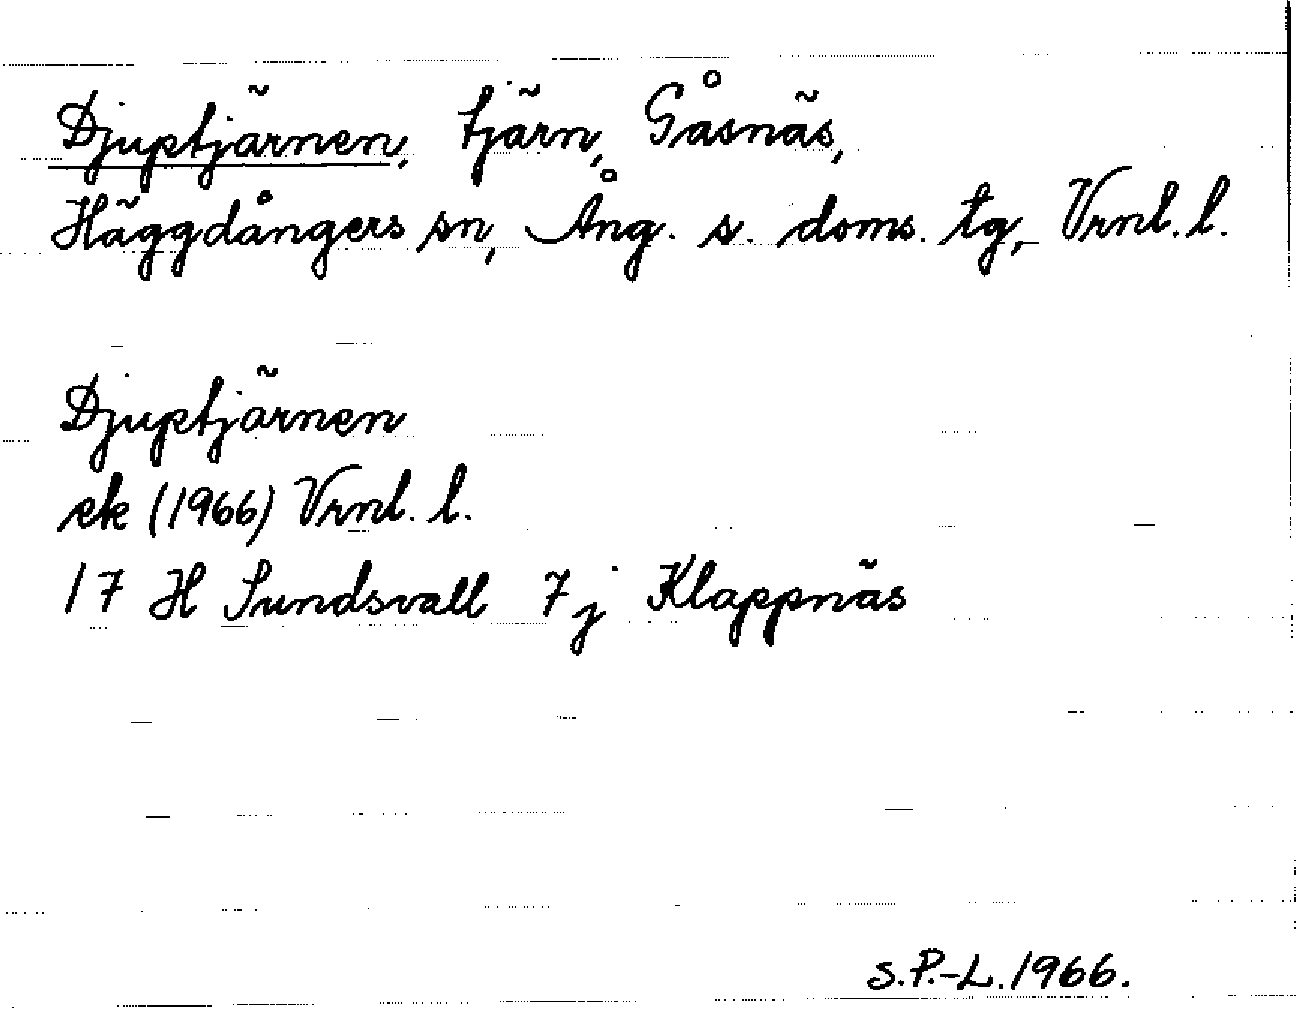 Djuptjärnen, tjärn, Gåsnäs,
Häggdångers sn, Ång. s. doms. tg, Vrnl. l.
Djuptjärnen
ek (1966) Vrnl. l.
17 H Sundsvall 7 j Klappnäs
S.P.-L. 1966.